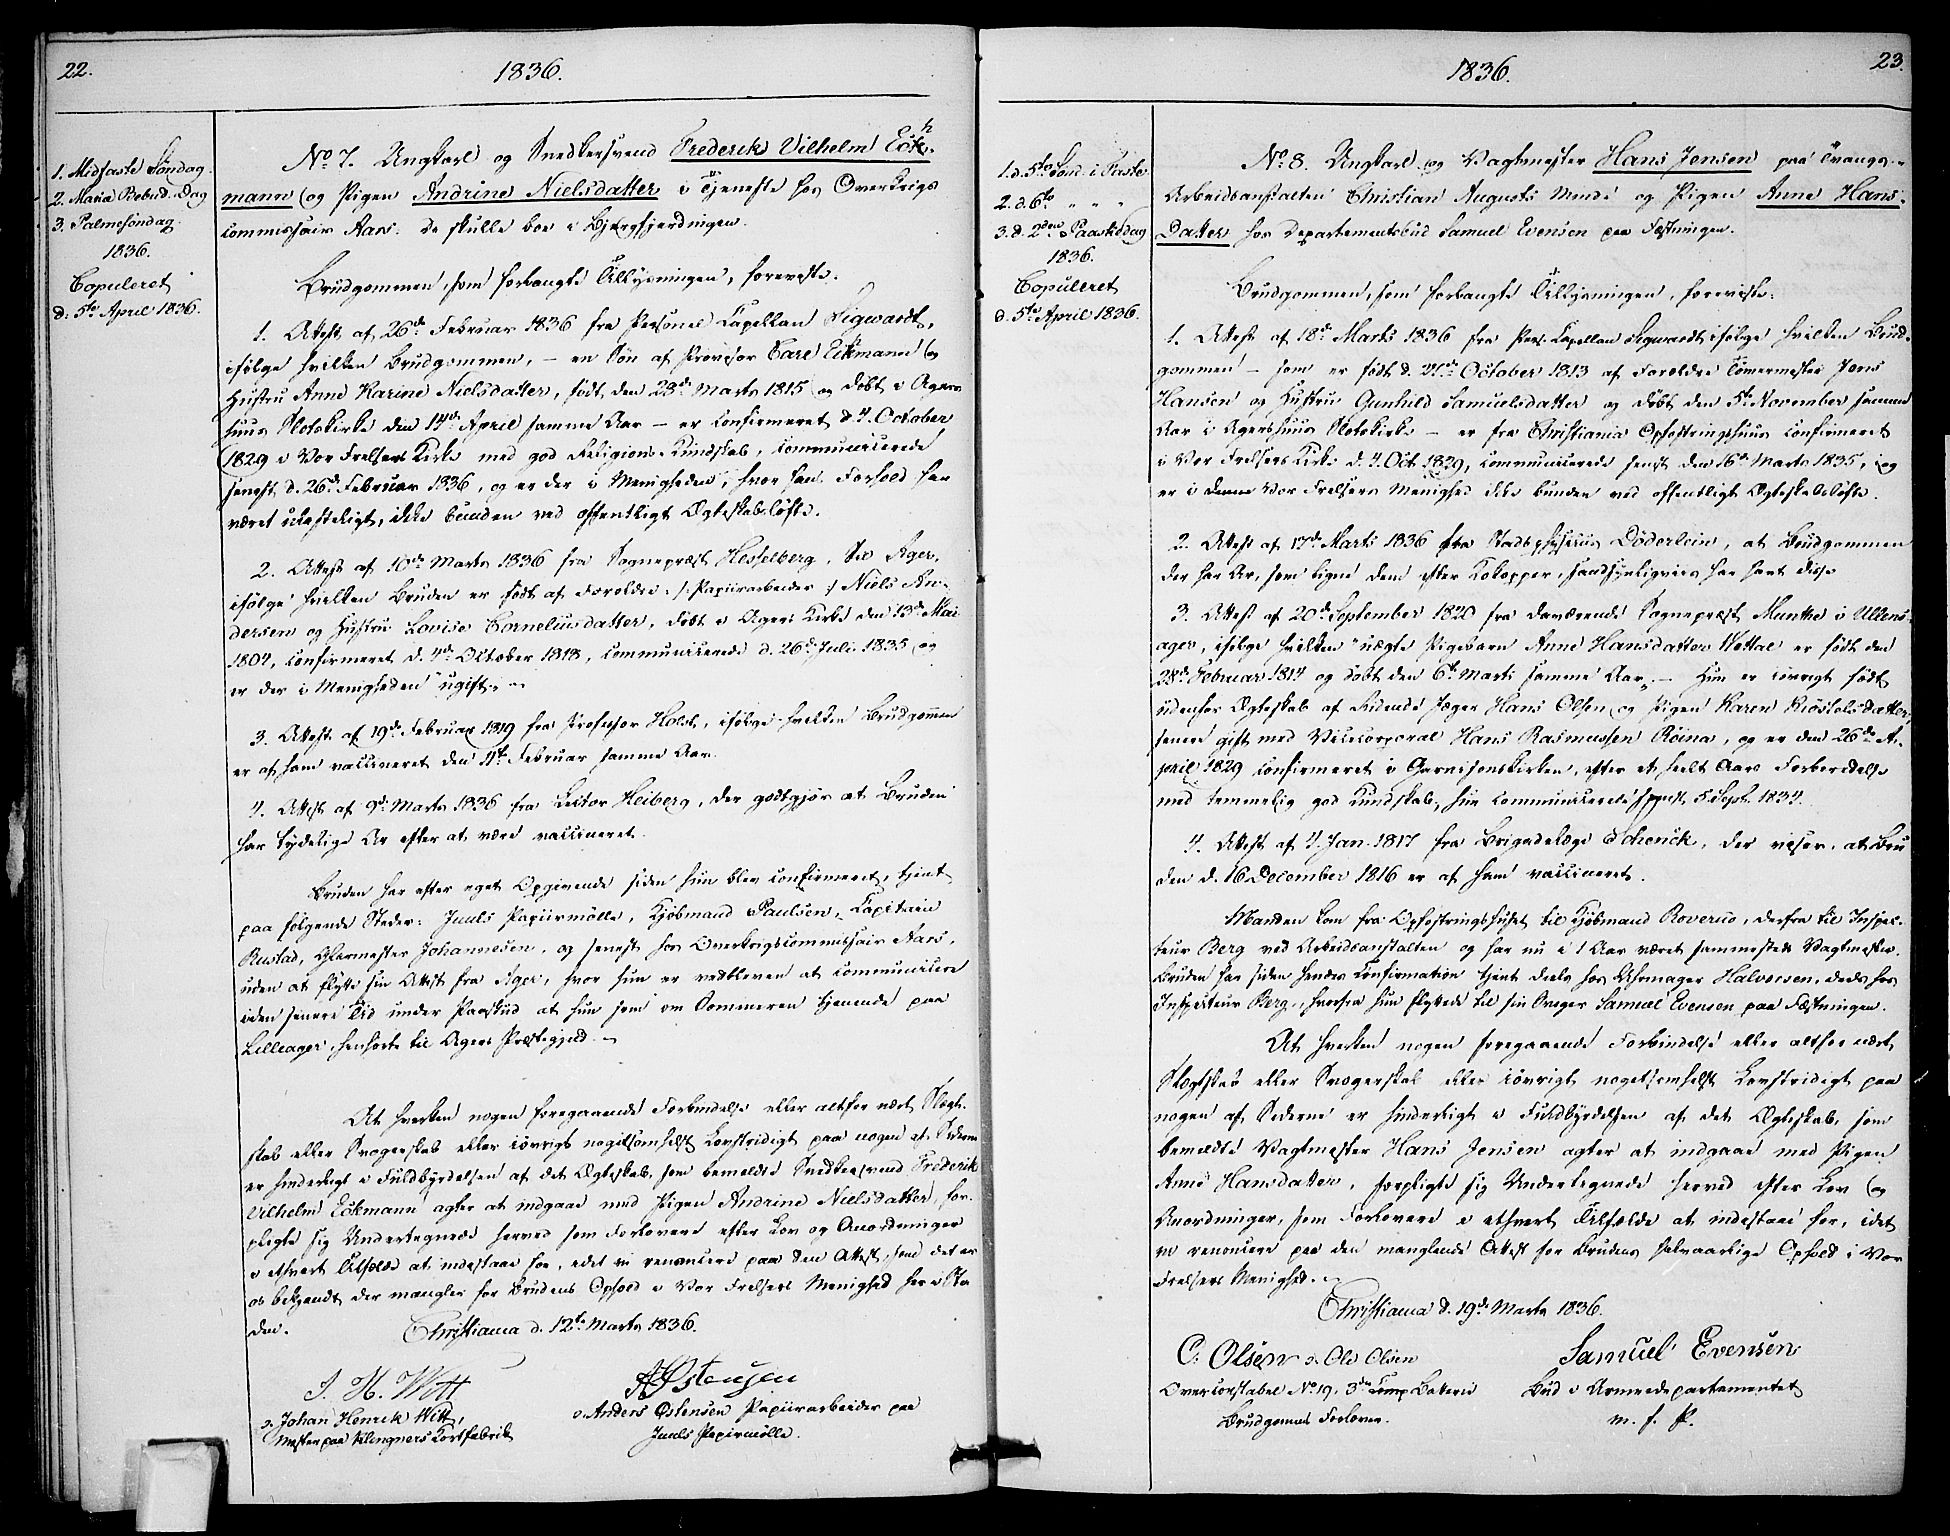 22.
1836.
1. Midfaste Søndag.
2. Maria Bebud. Dag
3. Palmesøndag.
1836.
Copuleret
d: 5te April 1836.
No 7. Ungkarl og Snedkersvend Frederik Vilhelm Eck-
mann og Pigen Andrine Nielsdatter i Tjeneste hos Overkrigs
commissair Aars. De skulle boe i Bjergfjerdingen.
Brudgommen, som forlangte Tillysningen, foreviste:
1. Attest af 26de Februar 1836 fra Personel Capellan Sigwardt,
ifølge hvilken Brudgommen, – en Søn af Provisor Carl Eckmann og
Hustru Anne Karine Nielsdatter, født den 28de Marts 1815 og døbt i Agers-
huus Slotskirke den 14de April samme Aar – er confirmeret d. 4. October
1829 i Vor Frelsers Kirke med god Religions Kundskab, communicerede
senest d. 26de Februar 1836, og er der i Menigheden, hvor han Forhold har
været ulasteligt, ikke bunden ved offentligt Ægteskabsløfte.
2. Attest af 10de Marts 1836 fra Sognepræst Hesselberg, til Ager,
ifølge hvilken Bruden er født af Forældre: /: Papiirarbeider :/ Niels An-
dersen og Hustru Lovise Corneliusdatter, døbt i Agers Kirke den 13de Mai
1804, confirmeret d. 4de October 1818, communicerede d. 26de Juli 1835 og
er der i Menigheden "ugift".
3. Attest af 19de Februar 1819 fra Professor Holst, ifølge hvilken Brudgommen
er af ham vaccineret den 11te Februar samme Aar.
4. Attest af 9de Marts 1836 fra Lector Heiberg, der godtgjør at Bruden
har tydelige Ar efter at være vaccineret.
Bruden har efter eget Opgivende siden hun blev confirmeret, tjent
paa følgende Steder: Juuls Papiirmølle, Kjøbmand Paulsen, Capitain
Rustad, Glarmester Johannesen, og senest hos Overkrigscommissair Aars,
uden at flytte sin Attest fra Ager, hvor hun er vedbleven at communicere
i den senere Tid under Paaskud at hun som om Sommeren tjenende paa
Lilleager, henhørte til Agers Præstegjeld.
At hverken nogen foregaaende Forbindelse eller altfor nært Slægt-
skab eller Svogerskab eller iøvrigt nogetsomhelst Lovstridigt paa nogen af Siderne
er hinderligt i Fuldbyrdelsen af det Ægteskab, som bemeldte Snedkersvend Frederik
Vilhelm Eckmann agter at indgaae med Pigen Andrine Nielsdatter, for-
pligte sig Undertegnede herved som Forlovere efter Lov og Anordninger
i ethvert Tilfælde at indestaae for, idet vi renoncere paa den Attest, som det er
os bekjendt, der mangler for Brudens Ophold i Vor Frelsers Menighed her i Sta
den.
Christiania d. 12te Marts 1836.
J. H. Witt
o: Johan Henrik Witt,
Mester paa Klingners Kortfabrik
AØstensen
o: Anders Østensen Papiirarbeider paa
Juuls Papirmølle.
23.
1836.
1. d. 5te Sønd. i Faste
2. d. 6te " " "
3. d. 2den Paaskedag
1836.
Copuleret
d. 5te April 1836.
No 8. Ungkarl og Vagtmester Hans Jensen paa Tvangs-
Arbeidsanstalten Christian Augusts Minde og Pigen Anne Hans-
Datter hos Departementsbud Samuel Evensen paa Fæstningen.
Brudgommen, som forlangte Tillysningen, foreviste:
1. Attest af 18de Marts 1836 fra Pers. Capellan Sigwardt ifølge hvilken Brud-
gommen – som er født d. 21de October 1813 af Forældre Tømermester Jens
Hansen og Hustru Gunhild Samuelsdatter og døbt den 5te November samme
Aar i Agershuus Slotskirke – er fra Christiania Opfostringshuus confirmeret
i Vor Frelsers Kirke d. 4. Oct 1829, communicerede senest den 16de Marts 1835, og
er i denne Vor Frelsers Menighed ikke bunden ved offentligt Ægteskabsløfte.
2. Attest af 17de Marts 1836 fra Stadsphysicus Döderlein, at Brudgommen
der har Ar, som ligne dem efter Kokopper, sandsynligviis har havt disse
3. Attest af 20de September 1820 fra daværende Sognepræst Munthe i Ullens-
ager, ifølge hvilken "uægte Pigebarn Anne Hansdatter Wettal er født den
28de Februar 1814 og døbt den 6te Marts samme Aar". – Hun er iøvrigt født
udenfor Ægteskab af Ridende Jæger Hans Olsen og Pigen Karen Kiøstolsdatter,
senere gift med Vicecorporal Hans Rasmussen Roina, og er den 26de A-
pril 1829 confirmeret i Garnisonskirken, efter et heelt Aars Forberedelse
med temmelig god Kundskab; hun communicerede senest 5. Sept. 1834.
4. Attest af 4. Jan. 1817 fra Brigadelæge Schenck, der viser, at Bru
den d. 16 December 1816 er af ham vaccineret.
Manden kom fra Opfostringshuset til Kjøbmand Roverud, derfra til Inspec-
teur Berg ved Arbeidsanstalten og har nu i 1 Aar været sammesteds Vagtmester.
Bruden har siden hendes Confirmation tjent deels hos Uhrmager Halvorsen, deels hos
Inspecteur Berg, hvorfra hun flyttede til sin Svoger Samuel Evensen paa Fæstningen.
At hverken nogen foregaaende Forbindelse eller altfor nært
Slægtskab eller Svogerskab eller iøvrigt nogetsomhelst Lovstridigt paa
nogen af Siderne er hinderligt i Fuldbyrdelsen af det Ægteskab, som
bemeldte Vagtmester Hans Jensen agter at indgaae med Pigen
Anne Hansdatter, forpligte sig Undertegnede herved efter Lov og
Anordninger, som Forlovere i ethvert Tilfælde at indestaae for, idet
vi renoncere paa den manglende Attest for Brudens halvaarlige Ophold i Vor
Frelsers Menighed.
Christiania d. 19de Marts 1836.
C. Olsen o: Ole Olsen
Overconstabel No 19, 3die Comp Batterie
Brudgommens Forlover.
Samuel Evensen
Bud i Armeedepartementet
m. f. P.